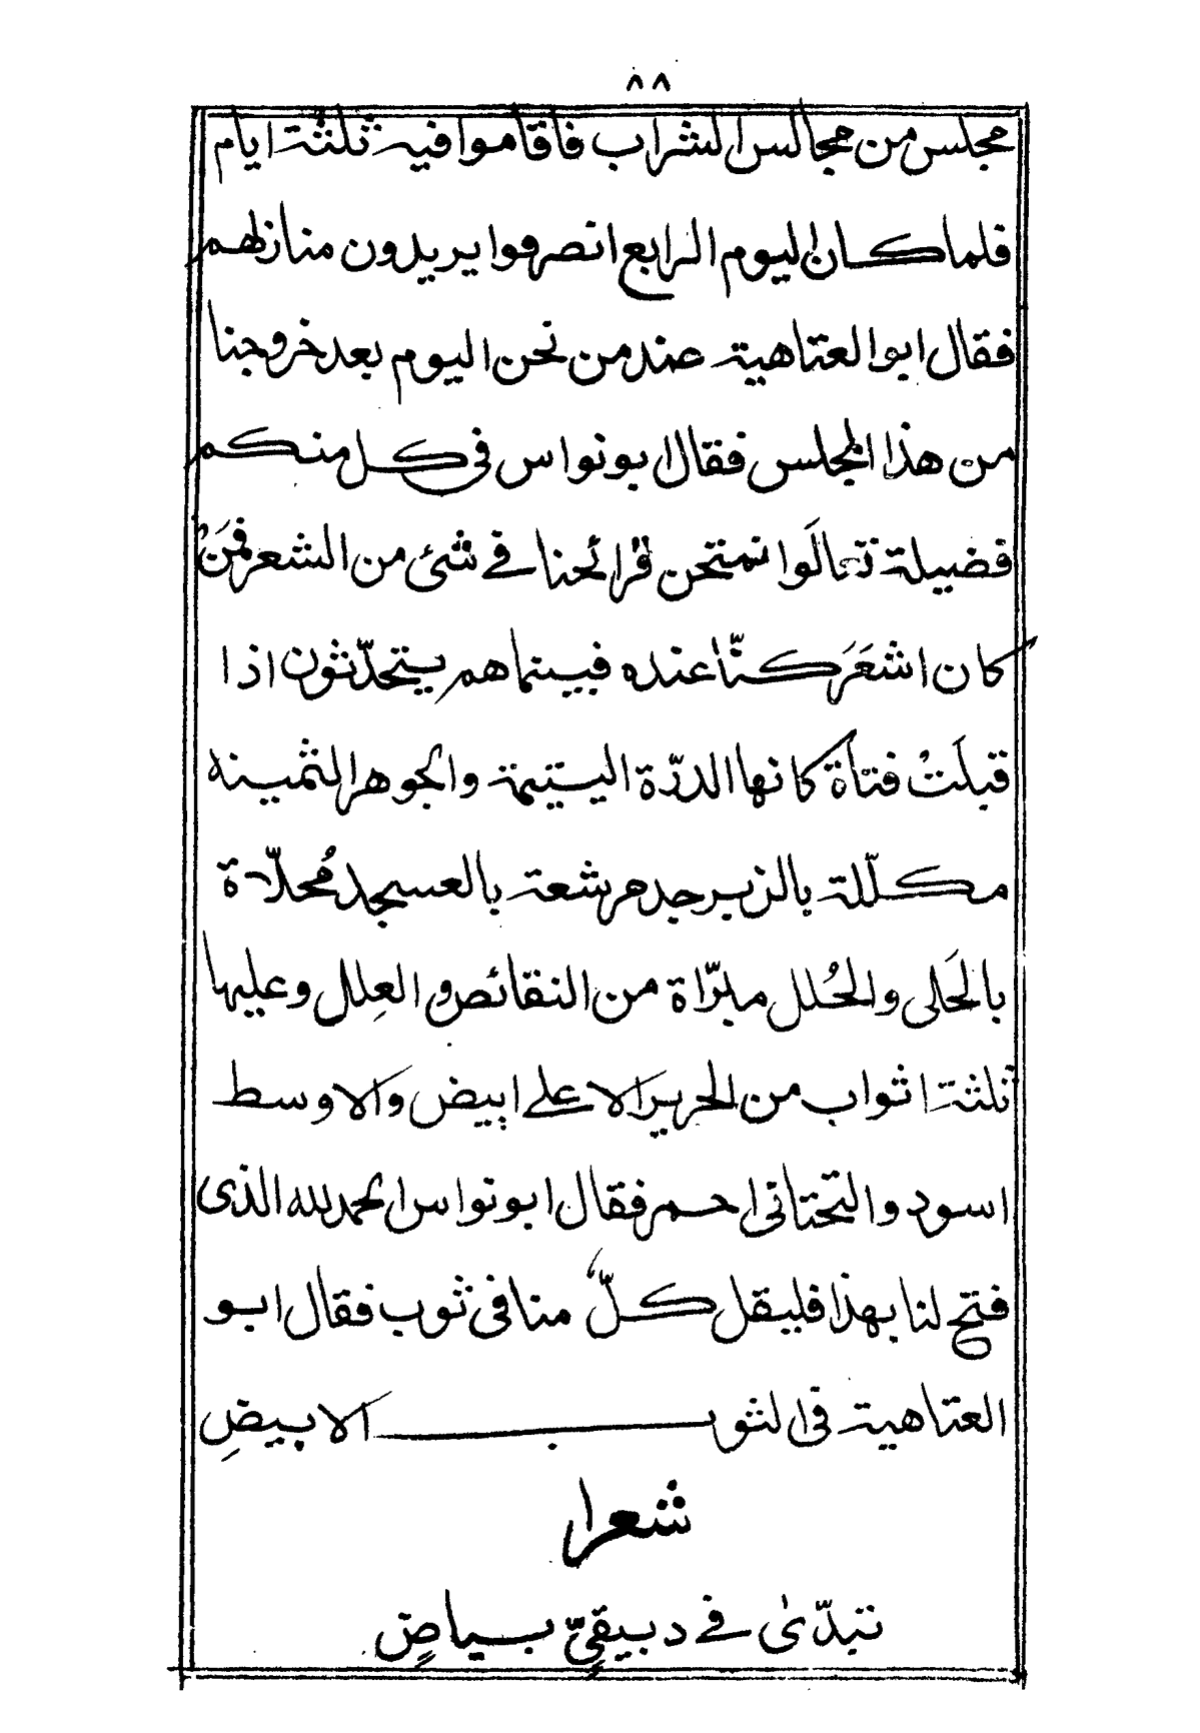 ٨٨
مجلس من مجالس الشراب فاقاموا فيه ثلثة ايام
فلما كان اليوم الرابع انصرفوا يريدون منازلهم
فقال ابو العتاهية عند من نحن اليوم بعد خروجنا
من هذا المجلس فقال ابو نواس فى كل منكم
فضيلة تعالَوا نمتحن قرائحنا فے شئ من الشعر فمَنْ
كان اشعَرَ كنّا عنده فبينما هم يتحدّثون اذا
قبلَتْ فتاة كانها الدرّة اليتيمة والجوهر الثمينه
مكلّلة بالزبرجد مرشعة بالعسجد مُحلّاة
بالحَلى والحُلل مبرّاة من النقائص و العِلل وعليها
ثلثة اثواب من الحرير الاعلے ابيض والاوسط
اسود والتحتانى احمر فقال ابو نواس الحمد لله الذى
فتح لنا بهذا فليقل كلٌّ منا فى ثوب فقال ابو
العتاهية فى الثوب الابيضِ
شعرا
تبدّىٰ فے دبيقىٍّ بياضٍ